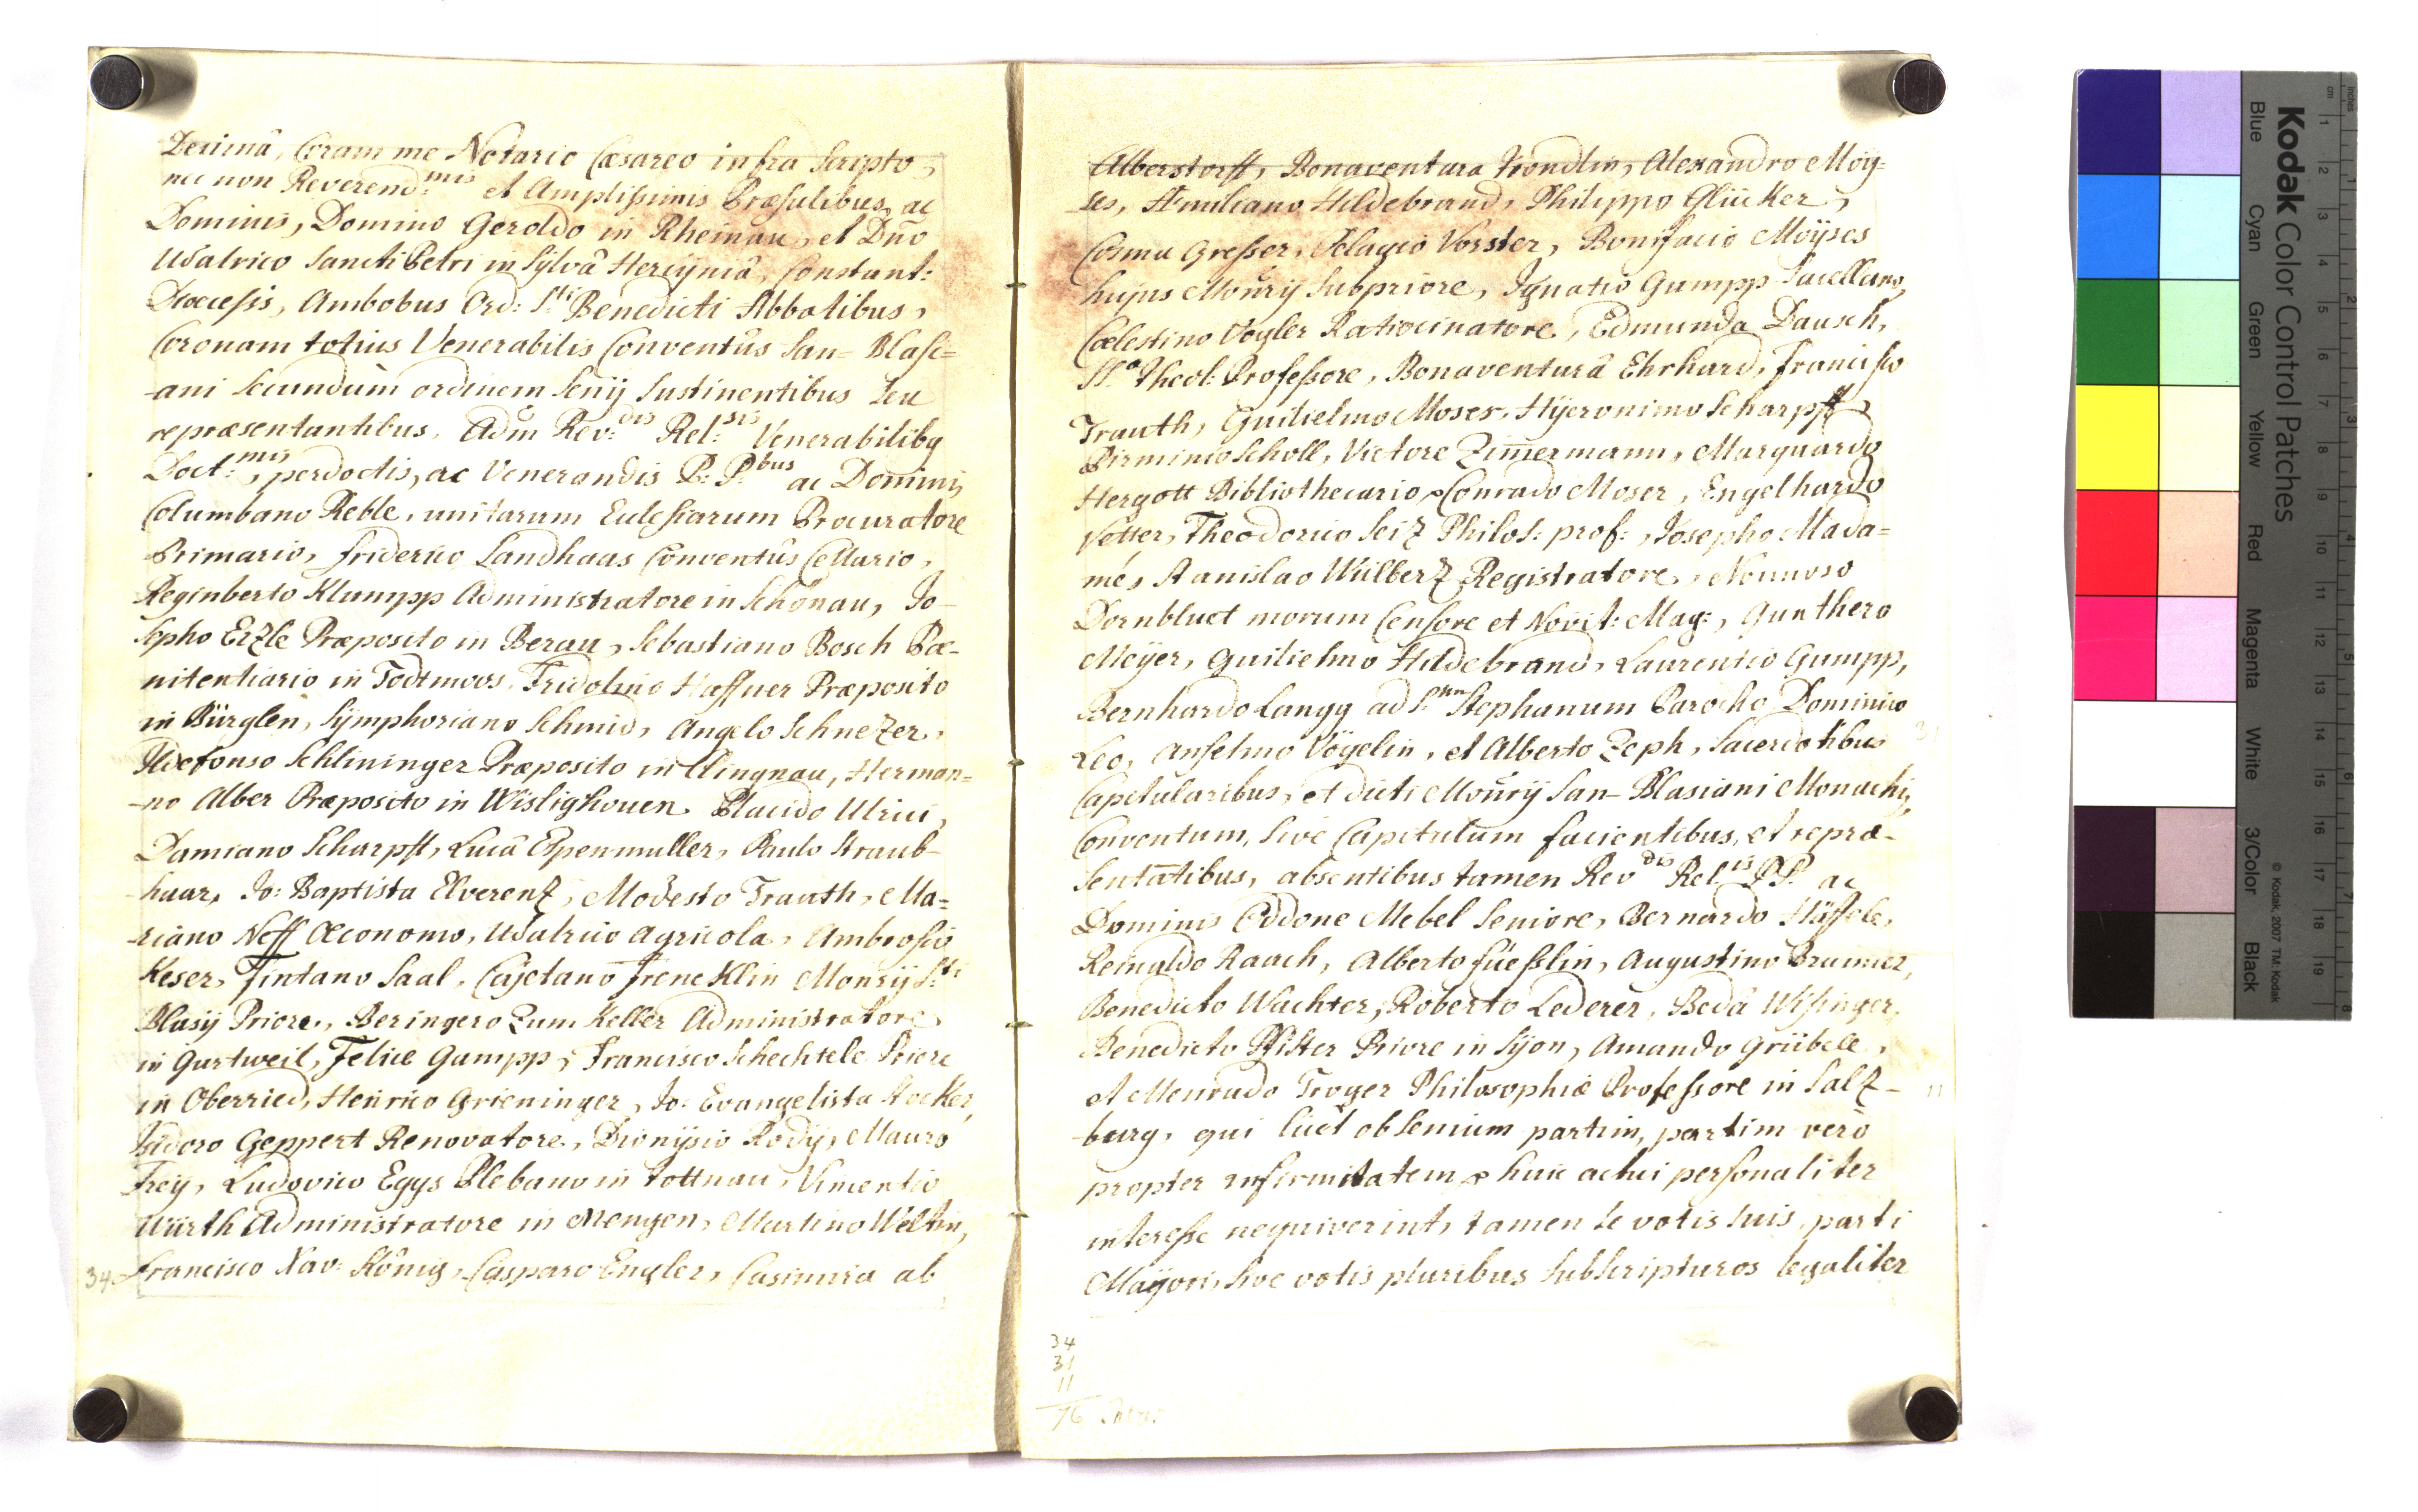 Decimâ, Coram me Notario Cæsareo infra scripto,
nec non Reverend:mis et Amplissimis Præsulibus, ac
Dominis, Domino Geroldo in Rheinau, et Dno
Udalrico Sancti Petri in Sylvâ Hercyniâ, Constant:
Diocesis, Ambobus Ord: Sti Benedicti Abbatibus,
Coronam totius Venerabilis Conventûs San= Blasi=
-ani secundum ordinem Senij Sustinentibus seu
repræsentantibus, Adm Rev:dis Rel:sis Venerabilibq
Doct:mis, perdoctis, ac Venerandis P: P:bus ac Dominis
Columbano Reble, unitarum Ecclesiarum Procuratore
Primario, Friderico Landhaas Conventûs Cellario,
Reginberto Klumpp Administratore in Schönau, Jo-
sepho Erzle Præposito in Berau, Sebastiano Bosch Pœ-
nitentiario in Todtmoos, Fridolino Haffner Præposito
in Bürglen, Symphoriano Schmid, Angelo Schnezer,
Ildefonso Schlininger Præposito in Clingnau, Herman=
-no Alber Præposito in Wislighouen Placido Ulrici,
Damiano Scharpff, Lucâ Espenmuller, Paulo Straub-
haar, Jo: Baptista Elverenz, Modesto Trauth, Ma=
-riano Neff Œconomo, Udalrico Agricola, Ambrosio
Keser, Fintano Saal, Cajetano Frenecklin Monrij S:ti
Blasij Priore, Beringero Zum Keller Administratore
in Gurtweil, Felice Gumpp, Francisco Schechtele Priore
in Oberried, Henrico Grieninger, Jo: Evangelista Stocker,
Isidoro Geppert Renovatore, Dionysio Rody, Mauro
Frey, Ludovico Egys Plebano in Tottnau, Vincentio
Würth Administratore in Mengen, Martino Weltin,
34 Francisco Xav: König, Casparo Engler, Casimiro ab
Alberstorff, Bonaventura Trondlin, Alexandro Moÿ=
ses, Æmiliano Hildebrand, Philippo Glücker,
Cosma Gresser, Pelagio Vorster, Bonifacio Moÿses
hujus Monrij Subpriore, Ignatio Gumpp Sacellano,
Cœlestino Vogler Ratiocinatore, Edmundo Dausch,
SS.æ Theol: Professore, Bonaventurâ Ehrhard, Francisco
Trauth, Guilielmo Moser, Hÿeronimo Scharpff,
Pirminio Scholl, Victore Zimermann, Marquardo
Hergott Bibliothecario, Conrado Moser, Engelhardo
Vetter, Theodorico Seiz Philos: prof:, Josepho Mada=
me, Stanislao Wülberz Registratore, Nonnoso
Dornbluet morum Censore et Novit: Mag:, Gunthero
Meÿer, Guilielmo Hildebrand, Laurentio Gumpp,
Bernhardo Langg ad S.um Stephanum Parocho Dominico
Leo, Anselmo Vögelin, et Alberto Zeph, Sacerdotibus
Capitularibus, et dicti Monrij San- Blasiani Monachis,
Conventum, Sive Capitulum facientibus, et repræ-
sentatibus, absentibus tamen Revdis Rel.is P.P. ac
Dominis Oddone Mebel Seniore, Bernardo Häfsele,
Reinaldo Raach, Alberto Füesslin, Augustino Brunner,
Benedicto Wachter, Roberto Lederer, Bedâ Wisinger,
Benedicto Pfister Priore in Syon, Amando Grübele,
et Menrado Troger Philosophiæ Professore in Salz-
burg, qui licet ob senium partim, partim verò
propter infirmitatem huic actui personaliter
interesse nequiverint, tamen se votis suis parti
Majori, sive votis pluribus subscripturos legaliter
31
11
34
31
11
76 Patres